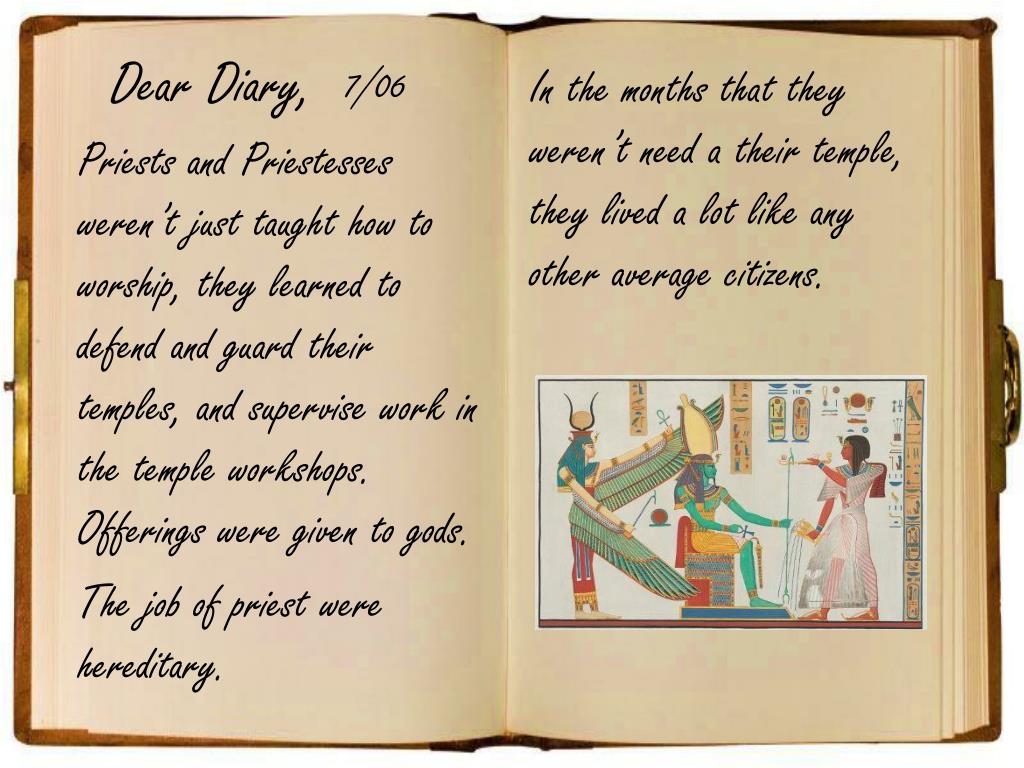 Dear Diary, 7/06
Priests and Priestesses
weren't just taught how to
worship, they learned to
defend and guard their
temples, and supervise work in
the temple workshops.
Offerings were given to gods.
The job of priest were
hereditary.
In the months that they
weren't need a their temple,
they lived a lot like any
other average citizens.